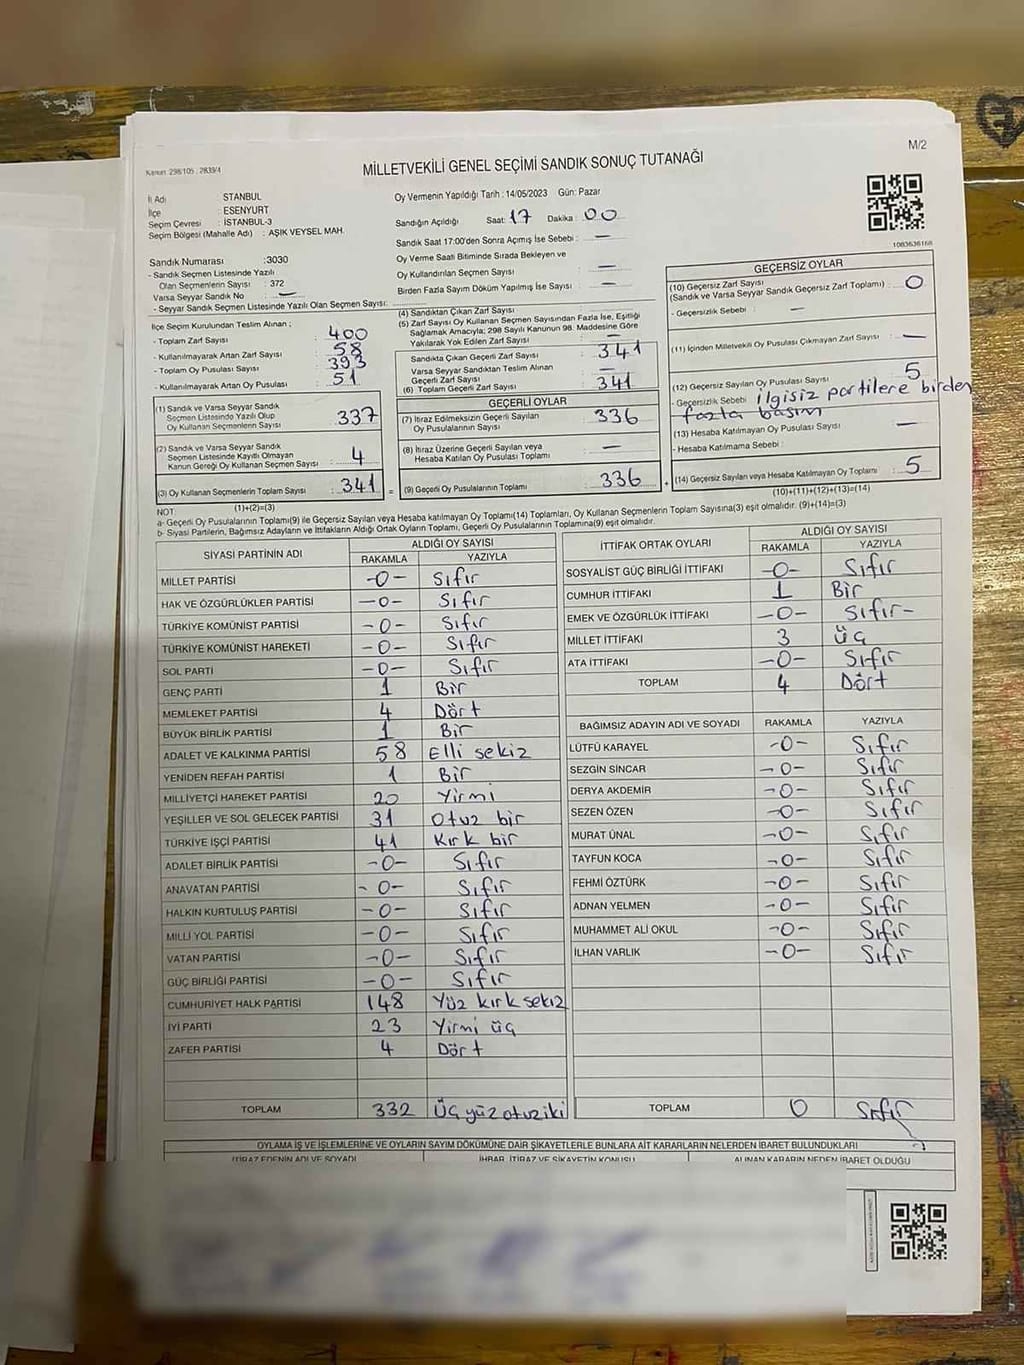 M/2
Kanun: 298/105 ; 2839/4
MİLLETVEKİLİ GENEL SEÇİMİ SANDIK SONUÇ TUTANAĞI
İl Adı STANBUL
İlçe : ESENYURT
Seçim Çevresi : İSTANBUL-3
Seçim Bölgesi (Mahalle Adı) : AŞIK VEYSEL MAH.
Oy Vermenin Yapıldığı Tarih : 14/05/2023 Gün: Pazar
Sandığın Açıldığı Saat: 17 Dakika : 00
Sandık Saat 17:00'den Sonra Açımış İse Sebebi : —
Oy Verme Saati Bitiminde Sırada Bekleyen ve
Oy Kullandırılan Seçmen Sayısı : —
Birden Fazla Sayım Döküm Yapılmış İse Sayısı : —
1083636168
Sandık Numarası :3030
- Sandık Seçmen Listesinde Yazılı
Olan Seçmenlerin Sayısı : 372
Varsa Seyyar Sandık No —
- Seyyar Sandık Seçmen Listesinde Yazılı Olan Seçmen Sayısı:
İlçe Seçim Kurulundan Teslim Alınan ;
- Toplam Zarf Sayısı : 400
- Kullanılmayarak Artan Zarf Sayısı : 58
- Toplam Oy Pusulası Sayısı : 393
- Kullanılmayarak Artan Oy Pusulası : 51
(1) Sandık ve Varsa Seyyar Sandık
Seçmen Listesinde Yazılı Olup
Oy Kullanan Seçmenlerin Sayısı : 337
(2) Sandık ve Varsa Seyyar Sandık
Seçmen Listesinde Kayıtlı Olmayan
Kanun Gereği Oy Kullanan Seçmen Sayısı : 4
(3) Oy Kullanan Seçmenlerin Toplam Sayısı : 341
(1)+(2)=(3)
(4) Sandıktan Çıkan Zarf Sayısı
(5) Zarf Sayısı Oy Kullanan Seçmen Sayısından Fazla İse, Eşitliği
Sağlamak Amacıyla; 298 Sayılı Kanunun 98. Maddesine Göre
Yakılarak Yok Edilen Zarf Sayısı : —
Sandıkta Çıkan Geçerli Zarf Sayısı : 341
Varsa Seyyar Sandıktan Teslim Alınan
Geçerli Zarf Sayısı : —
(6) Toplam Geçerli Zarf Sayısı : 341
GEÇERLİ OYLAR
(7) İtiraz Edilmeksizin Geçerli Sayılan
Oy Pusulalarının Sayısı : 336
(8) İtiraz Üzerine Geçerli Sayılan veya
Hesaba Katılan Oy Pusulası Toplamı : —
(9) Geçerli Oy Pusulalarının Toplamı : 336
GEÇERSİZ OYLAR
(10) Geçersiz Zarf Sayısı : 0
(Sandık ve Varsa Seyyar Sandık Geçersiz Zarf Toplamı)
- Geçersizlik Sebebi : —
(11) İçinden Milletvekili Oy Pusulası Çıkmayan Zarf Sayısı : —
(12) Geçersiz Sayılan Oy Pusulası Sayısı : 5
- Geçersizlik Sebebi : ilgisiz partilere birden
fazla basım
(13) Hesaba Katılmayan Oy Pusulası Sayısı : —
- Hesaba Katılmama Sebebi :
(14) Geçersiz Sayılan veya Hesaba Katılmayan Oy Toplamı : 5
(10)+(11)+(12)+(13)=(14)
NOT:
a- Geçerli Oy Pusulalarının Toplamı(9) ile Geçersiz Sayılan veya Hesaba katılmayan Oy Toplamı(14) Toplamları, Oy Kullanan Seçmenlerin Toplam Sayısına(3) eşit olmalıdır. (9)+(14)=(3)
b- Siyasi Partilerin, Bağımsız Adayların ve İttifakların Aldığı Ortak Oyların Toplamı, Geçerli Oy Pusulalarının Toplamına(9) eşit olmalıdır.
SİYASİ PARTİNİN ADI ALDIĞI OY SAYISI
RAKAMLA YAZIYLA
MİLLET PARTİSİ -0- Sıfır
HAK VE ÖZGÜRLÜKLER PARTİSİ -0- Sıfır
TÜRKİYE KOMÜNİST PARTİSİ -0- Sıfır
TÜRKİYE KOMÜNİST HAREKETİ -0- Sıfır
SOL PARTİ -0- Sıfır
GENÇ PARTİ 1 Bir
MEMLEKET PARTİSİ 4 Dört
BÜYÜK BİRLİK PARTİSİ 1 Bir
ADALET VE KALKINMA PARTİSİ 58 Elli sekiz
YENİDEN REFAH PARTİSİ 1 Bir
MİLLİYETÇİ HAREKET PARTİSİ 20 Yirmi
YEŞİLLER VE SOL GELECEK PARTİSİ 31 Otuz bir
TÜRKİYE İŞÇİ PARTİSİ 41 Kırk bir
ADALET BİRLİK PARTİSİ -0- Sıfır
ANAVATAN PARTİSİ -0- Sıfır
HALKIN KURTULUŞ PARTİSİ -0- Sıfır
MİLLİ YOL PARTİSİ -0- Sıfır
VATAN PARTİSİ -0- Sıfır
GÜÇ BİRLİĞİ PARTİSİ -0- Sıfır
CUMHURİYET HALK PARTİSİ 148 Yüz kırk sekiz
İYİ PARTİ 23 Yirmi üç
ZAFER PARTİSİ 4 Dört
TOPLAM 332 Üç yüz otuz iki
İTTİFAK ORTAK OYLARI ALDIĞI OY SAYISI
RAKAMLA YAZIYLA
SOSYALİST GÜÇ BİRLİĞİ İTTİFAKI -0- Sıfır
CUMHUR İTTİFAKI 1 Bir
EMEK VE ÖZGÜRLÜK İTTİFAKI -0- Sıfır-
MİLLET İTTİFAKI 3 Üç
ATA İTTİFAKI -0- Sıfır
TOPLAM 4 Dört
BAĞIMSIZ ADAYIN ADI VE SOYADI RAKAMLA YAZIYLA
LÜTFÜ KARAYEL -0- Sıfır
SEZGİN SİNCAR -0- Sıfır
DERYA AKDEMİR -0- Sıfır
SEZEN ÖZEN -0- Sıfır
MURAT ÜNAL -0- Sıfır
TAYFUN KOCA -0- Sıfır
FEHMİ ÖZTÜRK -0- Sıfır
ADNAN YELMEN -0- Sıfır
MUHAMMET ALİ OKUL -0- Sıfır
İLHAN VARLIK -0- Sıfır
TOPLAM 0 Sıfır
OYLAMA İŞ VE İŞLEMLERİNE VE OYLARIN SAYIM DÖKÜMÜNE DAİR ŞİKAYETLERLE BUNLARA AİT KARARLARIN NELERDEN İBARET BULUNDUKLARI
İTİRAZ EDENİN ADI VE SOYADI İHBAR, İTİRAZ VE ŞİKAYETİN KONUSU ALINAN KARARIN NEDEN İBARET OLDUĞU